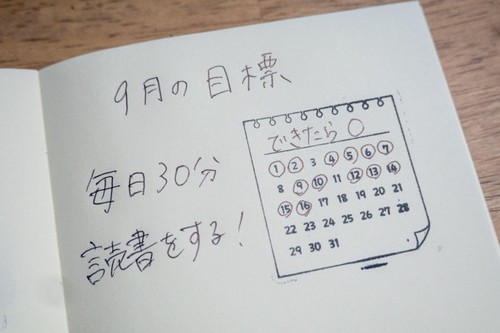 9月の目標
毎日30分
読書をする!
できたら○
1 2 3 4 5 6 7
8 9 10 11 12 13 14
15 16 17 18 19 20 21
22 23 24 25 26 27 28
29 30 31